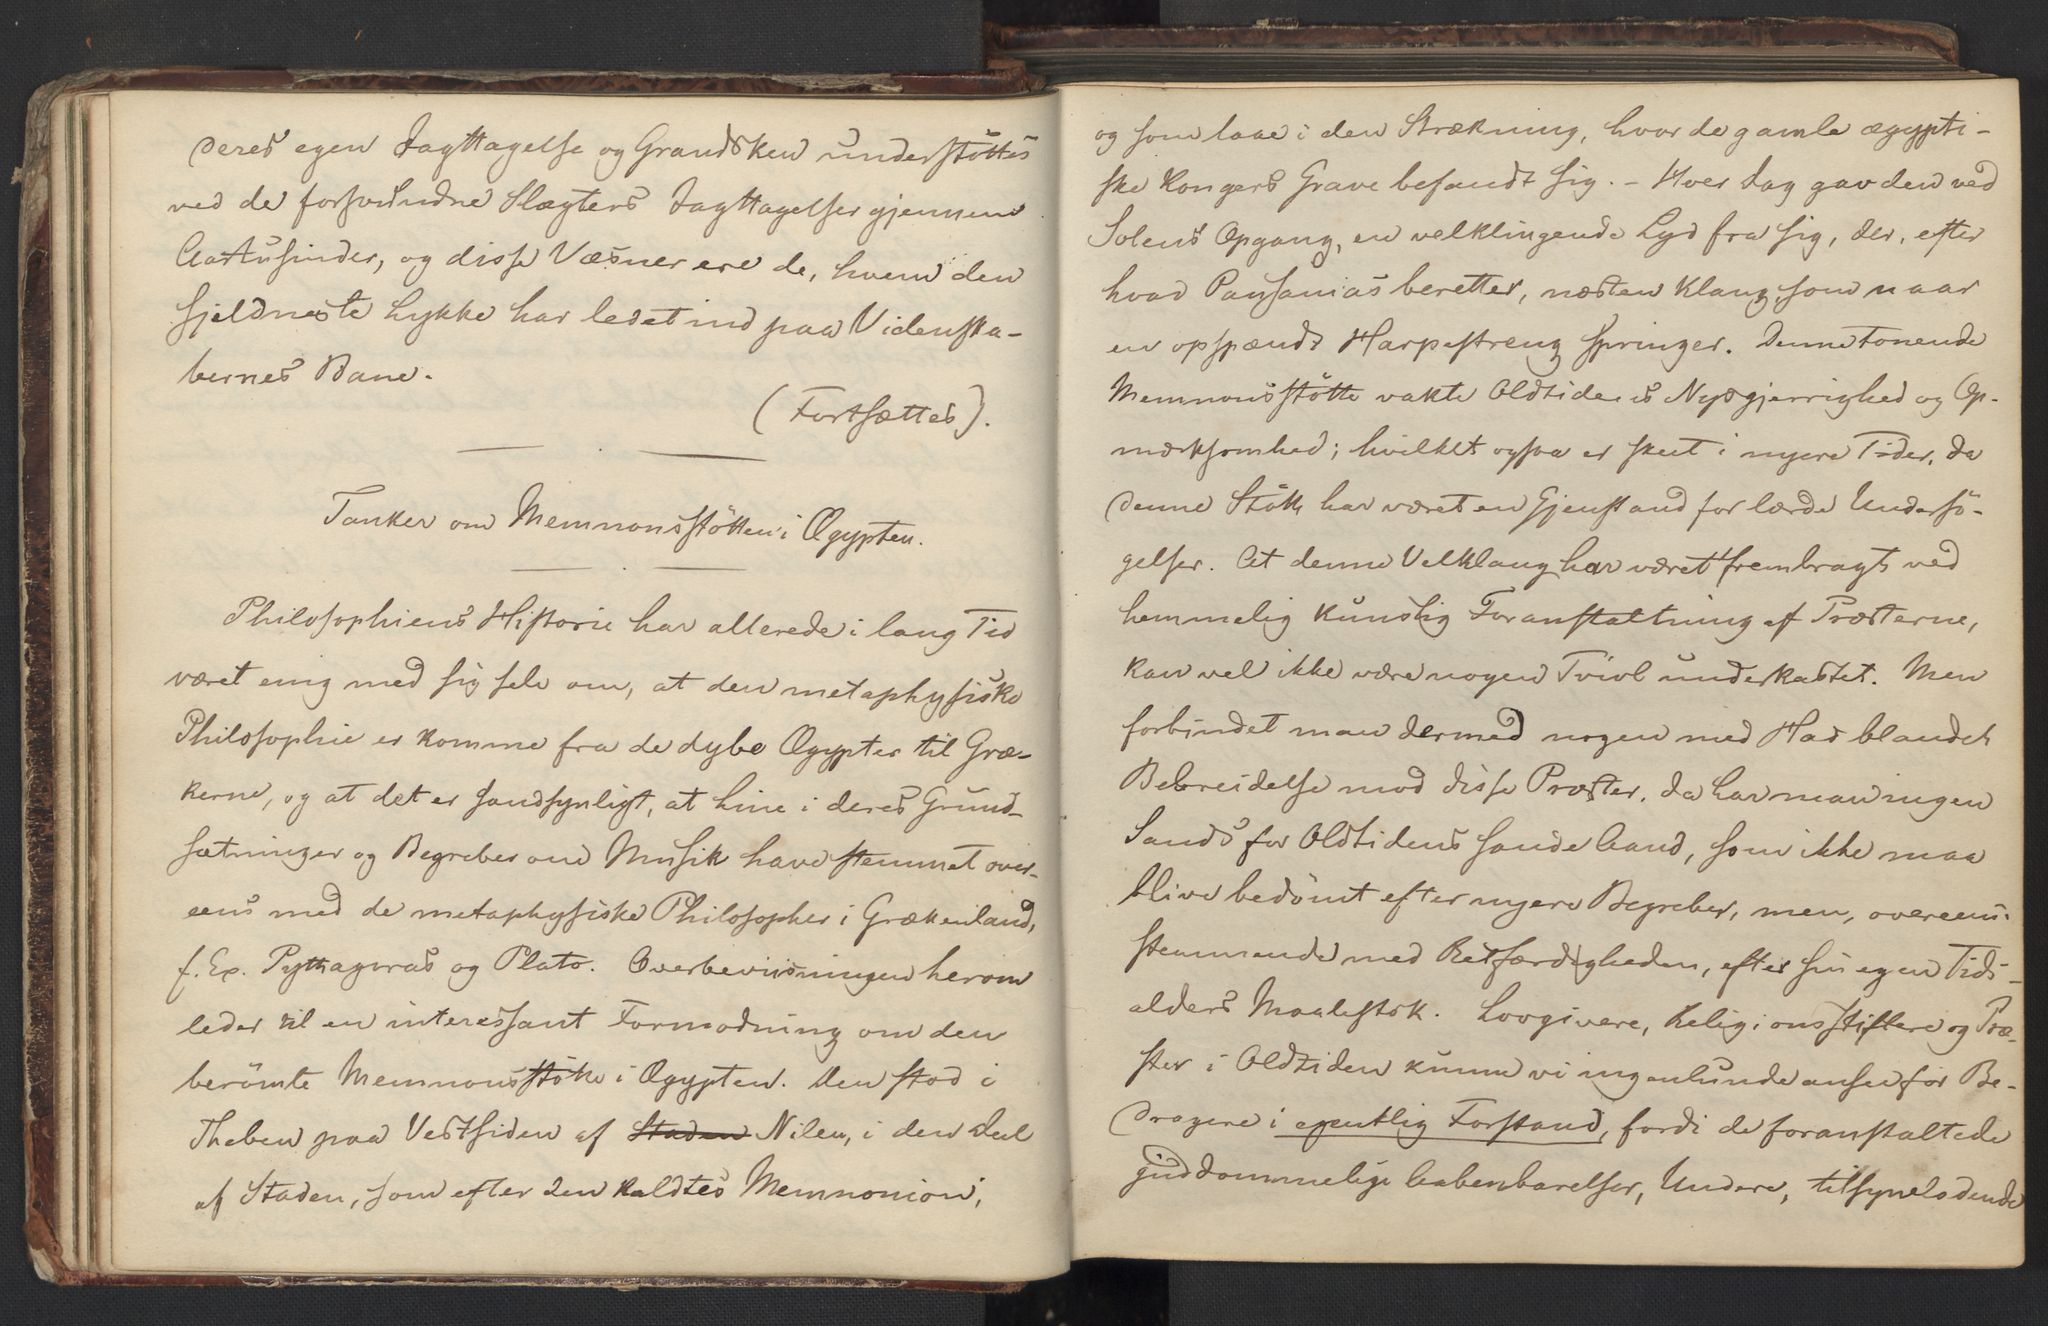 deres egen Iagttagelse og Grandsken understöttes
ved de forsvundne Slægters Iagttagelser gjennem
Aartusinder, og disse Væsner ere de, hvem den
sjeldneste Lykke har ledet ind paa Videnska-
bernes Bane.
(Fortsættes).
Tanker om Memnonsstötten i Ægypten.
Philosophiens Historie har allerede i lang Tid
været enig med sig selv om, at den metaphysiske
Philosophie er komme fra de dybe Ægypter til Græ-
kerne, og at det er sandsynligt, at hine i deres Grund-
sætninger og Begreber om Musik have stemmet over-
eens med de metaphysiske Philosopher i Grækenland,
f. Ex. Pythagoras og Plato. Overbeviisningen herom
leder til en interessant Formodning om den
berömte Memnonsstötte i Ægypten. Den stod i
Theben paa Vestsiden af Staden Nilen, i den Deel
af Staden, som efter den kaldtes Memnonion,
og som laae i den Strækning, hvor de gamle ægypti-
ske Kongers Grave befandt sig. - Hver Dag gav den ved
Solens Opgang, en velklingende Lyd fra sig, der, efter
hvad Pausanias beretter, næsten klang som naar
en opspændt Harpestreng springer. Denne tonende
Memnonsstötte vakte Oldtidens Nysgjerrighed og Op-
mærksomhed; hvilket ogsaa er skeet i nyere Tider, da
denne Stötte har været en Gjenstand for lærde Undersö-
gelser. At denne Velklang har været frembragt ved
hemmelig kunstig Foranstaltning af Præsterne,
kan vel ikke være nogen Tvivl underkastet. Men
forbindet man dermed nogen med Had blandet
Bebreidelse mod disse Præster, da har man ingen
Sands for Oldtidens sande Aand, som ikke maa
blive bedömt efter nyere Begreber, men, overeens-
stemmende med Retfærdigheden, efter sin egen Tids-
alders Maalestok. Lovgivere, Religionsstiftere og Præ-
ster i Oldtiden kunne vi ingenlunde ansee for Be-
dragere i egentlig Forstand, fordi de foranstaltede
guddommelige Aabenbarelser, Undere, tilsyneladende